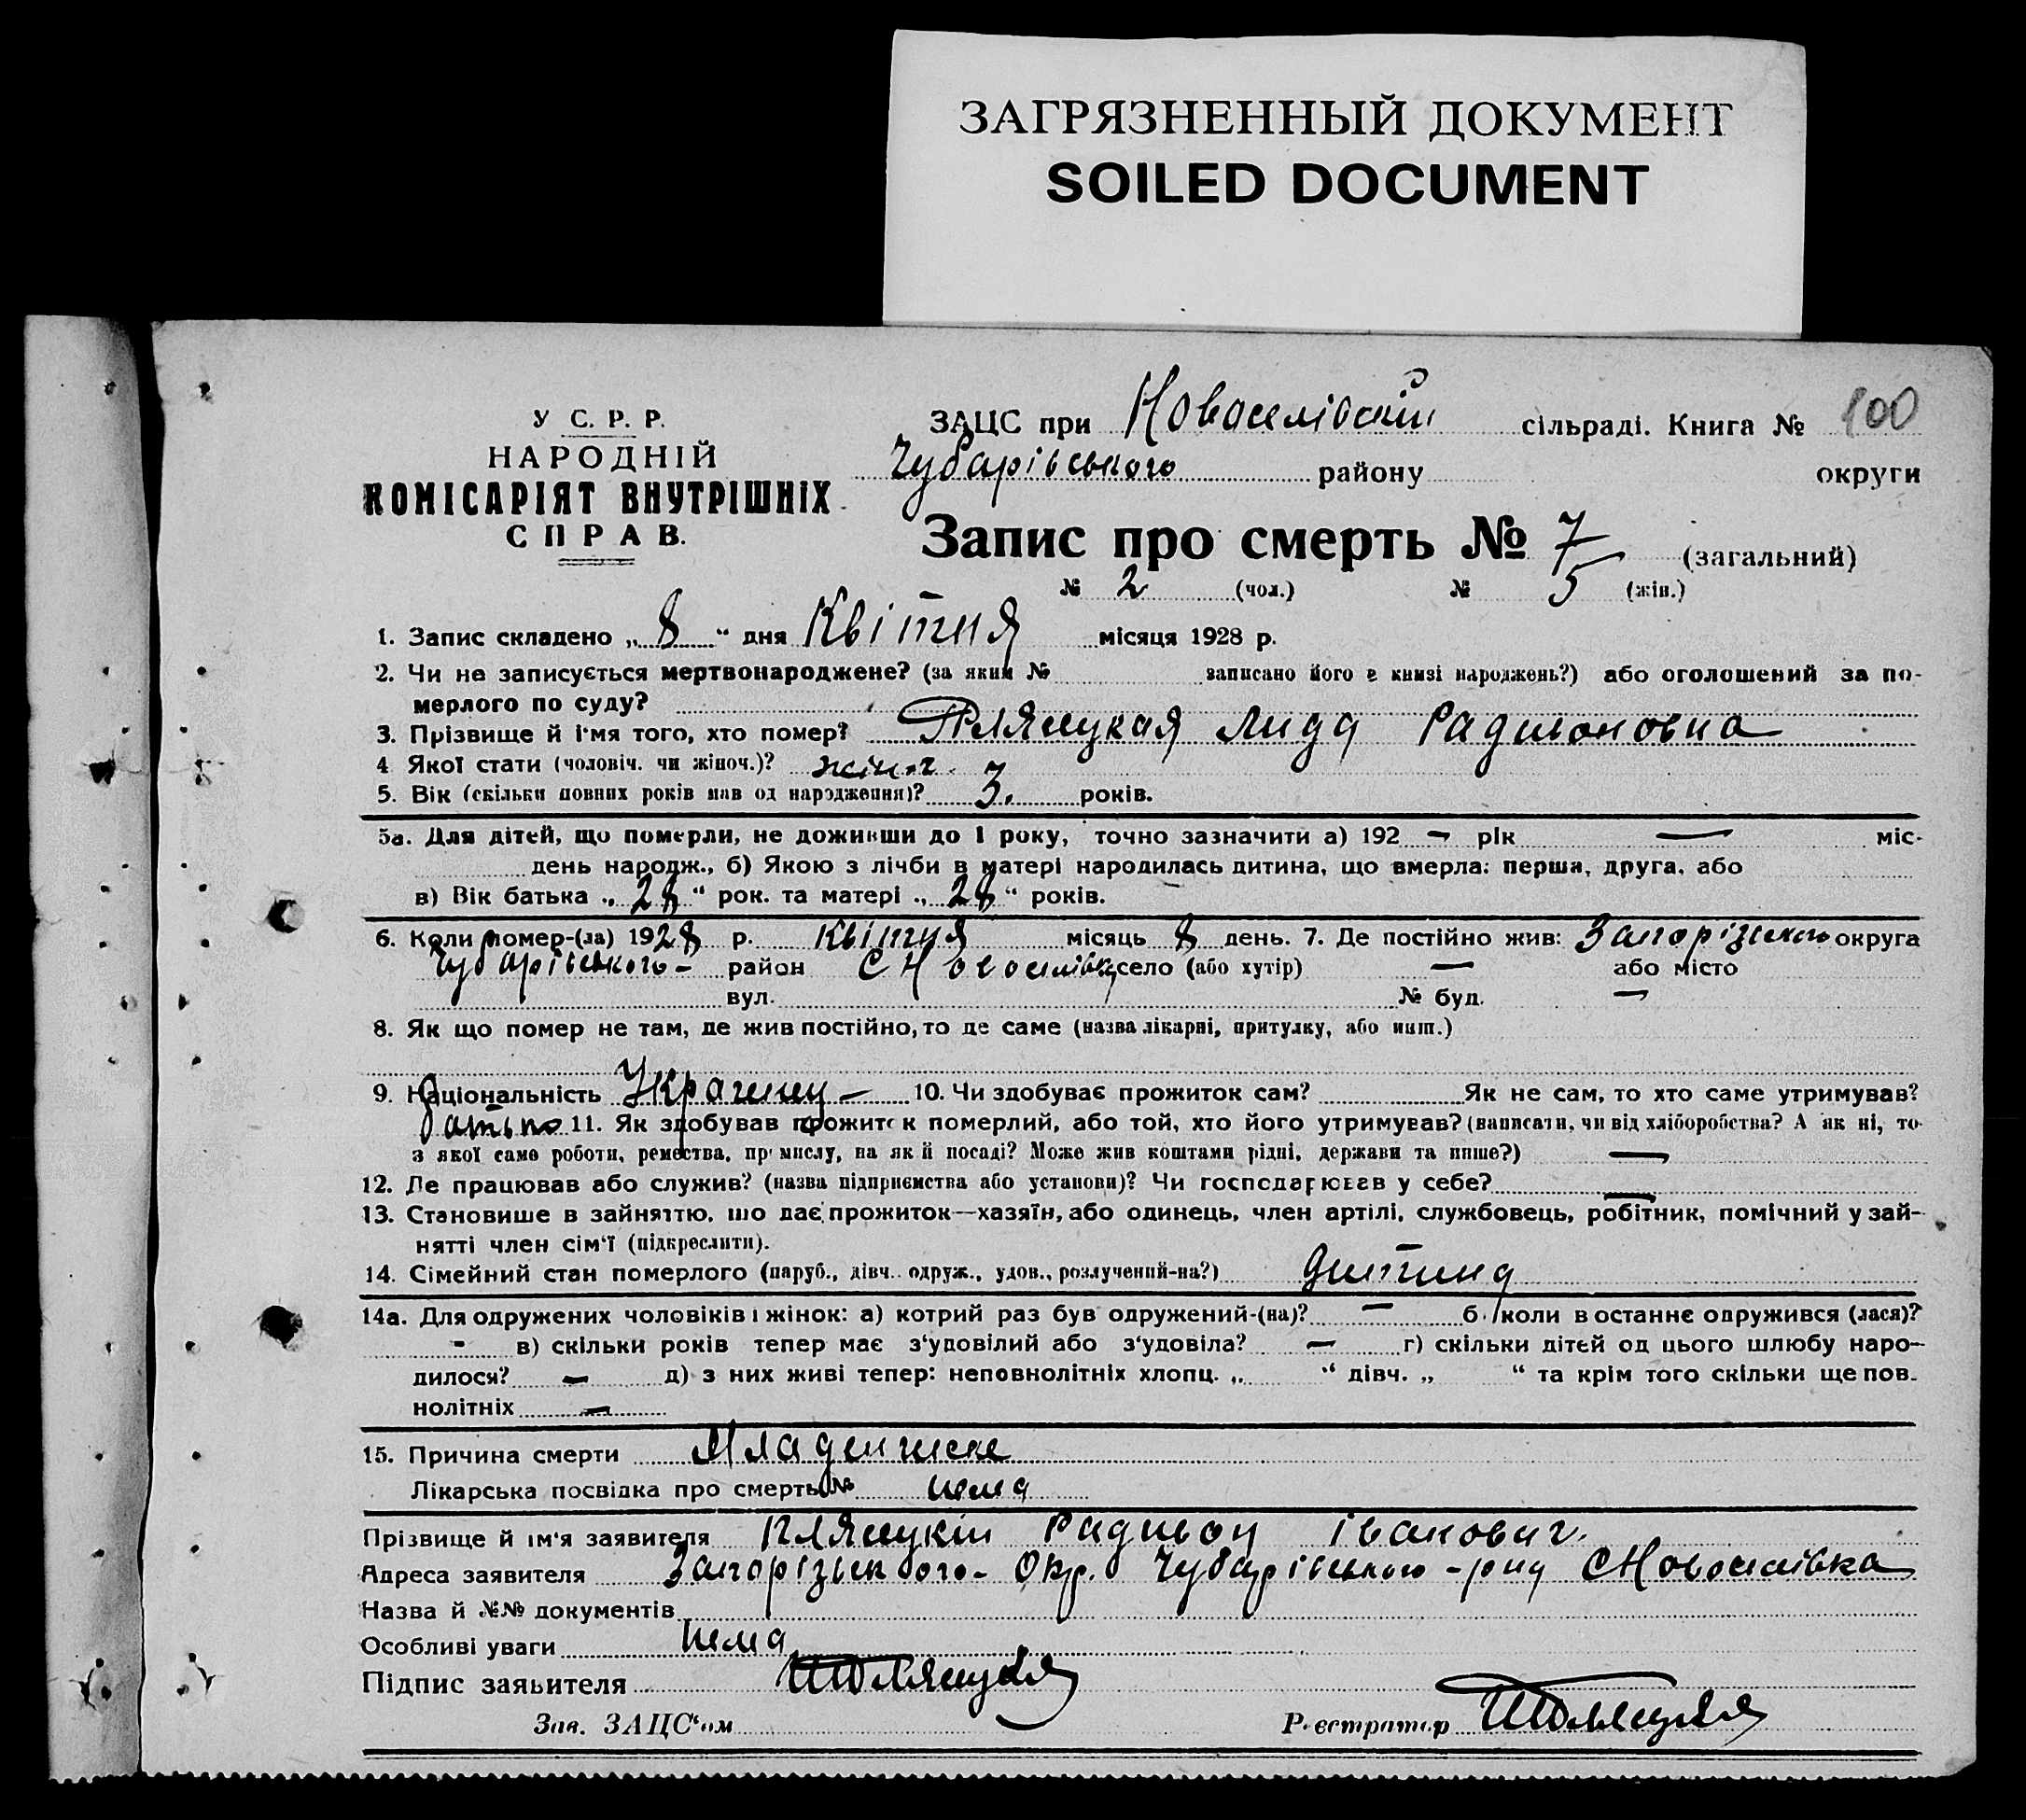 ЗАГРЯЗНЕННЫЙ ДОКУМЕНТ
SOILED DOCUMENT
У С. Р. Р.
НАРОДНІЙ
КОМІСАРІЯТ ВНУТРІШНІХ
СПРАВ.
ЗАЦС при Новоселівській сільраді. Книга № 100
Чубарівського району округи
Запис про смерть № 7 (загальний)
№ 2 (чол.) № 5 (жін.)
1. Запис складено „ 8 “ дня Квітня місяця 1928 р.
2. Чи не записується мертвонароджене? (за яким № записано його в книзі народжень?) або оголошений за по-
мерлого по суду?
3. Прізвище й і'мя того, хто помер? Лида Радионовна
4 Якої стати (чоловіч. чи жіноч.)? жіноч.
5. Вік (скільки повних років мав од народження)? 3. років.
5а. Для дітей, що померли, не доживши до 1 року, точно зазначити а) 192 – рік — міс-
день народж., б) Якою з лічби в матері народилась дитина, що вмерла: перша, друга, або
в) Вік батька „ 28 “ рок. та матері „ 28 “ років.
6. Коли помер-(ла) 1928 р. квітня місяць 8 день. 7. Де постійно жив: Запорізького округа
Чубарівського – район С Новоселівка село (або хутір) — або місто
вул. № буд. —
8. Як що помер не там, де жив постійно, то де саме (назва лікарні, притулку, або инш.)
9. Національність Украинец — 10. Чи здобуває прожиток сам? Як не сам, то хто саме утримував?
батько 11. Як здобував прожиток померлий, або той, хто його утримував? (написати, чи від хліборобства? А як ні, то
з якої саме роботи, ремества, промислу, на якій посаді? Може жив коштами рідні, держави та инше?) —
12. Де працював або служив? (назва підприємства або установи)? Чи господарював у себе? —
13. Становище в зайняттю, що дає прожиток—хазяїн, або одинець, член артілі, службовець, робітник, помічний у зай-
нятті член сім'ї (підкреслити).
14. Сімейний стан померлого (паруб., дівч. одруж., удов., розлучений-на?) дитина
14а. Для одружених чоловіків і жінок: а) котрий раз був одружений-(на)? — б) коли востаннє одружився (лася)?
- в) скільки років тепер має з'удовілий або з'удовіла? — г) скільки дітей од цього шлюбу наро-
дилося? — д) з них живі тепер: неповнолітніх хлопц. „ “ дівч. „ “ та крім того скільки ще пов-
нолітніх —
15. Причина смерти Младенческе
Лікарська посвідка про смерть № нема
Прізвище й ім'я заявителя Радивон Іванович.
Адреса заявителя Запорізького - Окр. Чубарівського - рну С Новоселівка
Назва й №№ документів
Особливі уваги нема
Підпис заявителя
Зав. ЗАЦС'ом Реєстратор